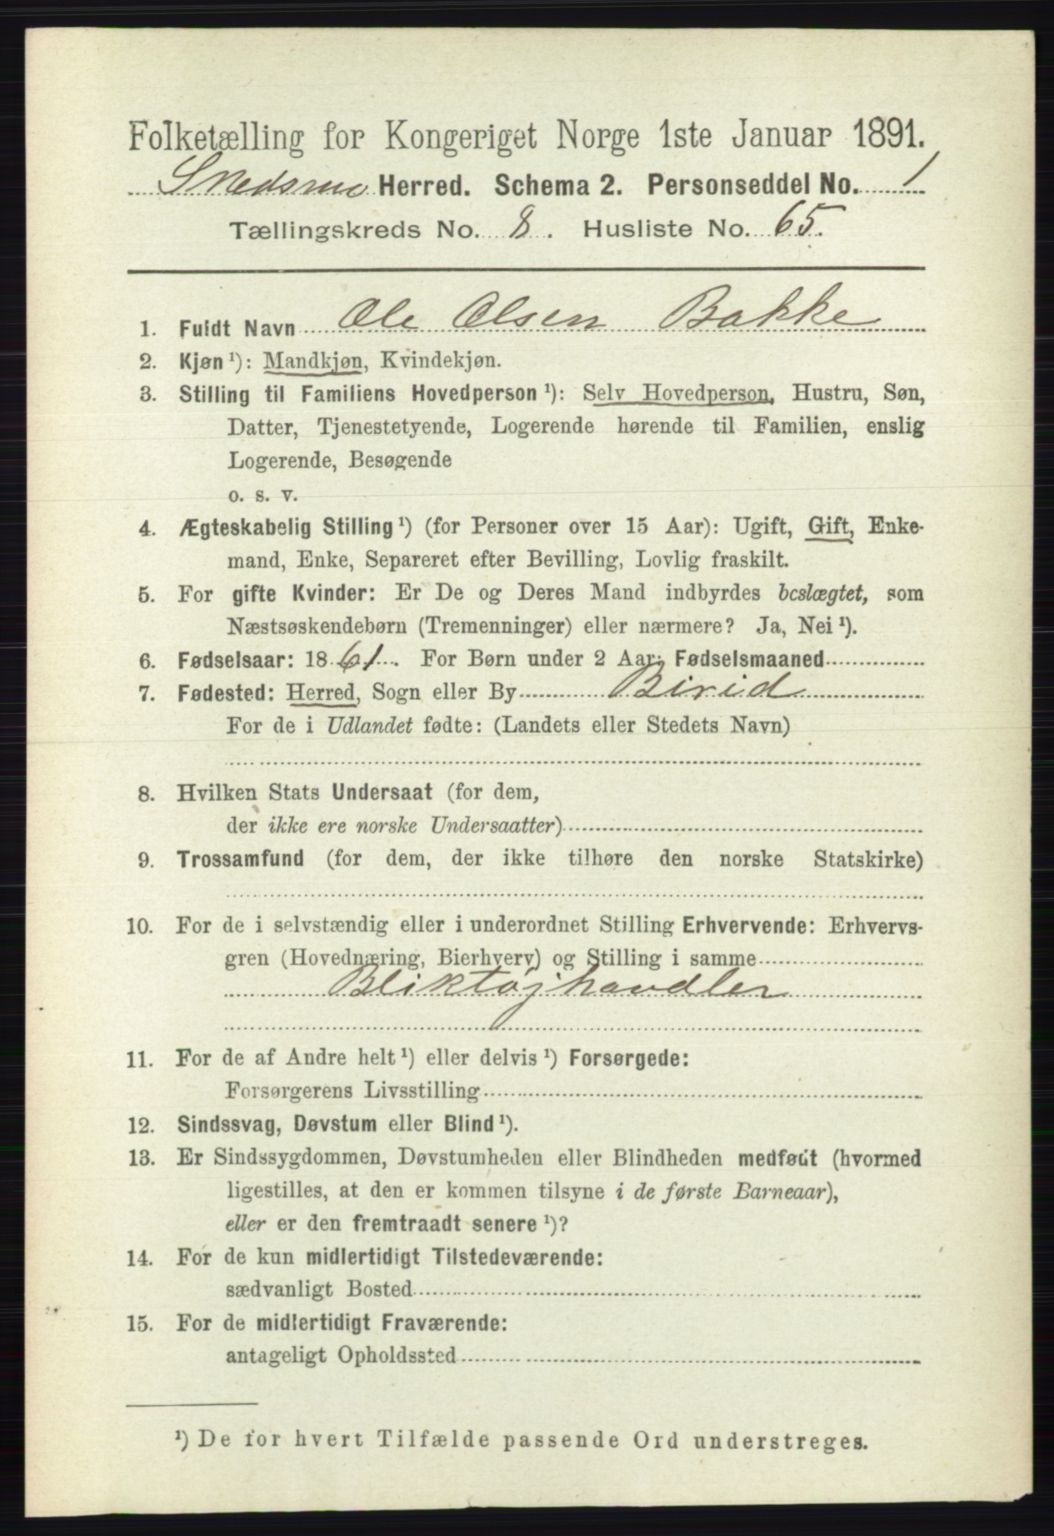 Folketælling for Kongeriget Norge 1ste Januar 1891.
Snedsmo Herred. Schema 2. Personseddel No. 1
Tællingskreds No. 8. Husliste No. 65.
1. Fuldt Navn Ole Olsen Bakke
2. Kjøn ¹): Mandkjøn, Kvindekjøn.
3. Stilling til Familiens Hovedperson ¹): Selv Hovedperson, Hustru, Søn,
Datter, Tjenestetyende, Logerende hørende til Familien, enslig
Logerende, Besøgende
o. s. v.
4. Ægteskabelig Stilling ¹) (for Personer over 15 Aar): Ugift, Gift, Enke-
mand, Enke, Separeret efter Bevilling, Lovlig fraskilt.
5. For gifte Kvinder: Er De og Deres Mand indbyrdes beslægtet, som
Næstsøskendebørn (Tremenninger) eller nærmere? Ja, Nei ¹).
6. Fødselsaar: 1861. For Børn under 2 Aar: Fødselsmaaned
7. Fødested: Herred, Sogn eller By Birid
For de i Udlandet fødte: (Landets eller Stedets Navn)
8. Hvilken Stats Undersaat (for dem,
der ikke ere norske Undersaatter)
9. Trossamfund (for dem, der ikke tilhøre den norske Statskirke)
10. For de i selvstændig eller i underordnet Stilling Erhvervende: Erhvervs-
gren (Hovednæring, Bierhverv) og Stilling i samme
Bliktøjhandler
11. For de af Andre helt ¹) eller delvis ¹) Forsørgede:
Forsørgerens Livsstilling
12. Sindssvag, Døvstum eller Blind ¹).
13. Er Sindssygdommen, Døvstumheden eller Blindheden medfødt (hvormed
ligestilles, at den er kommen tilsyne i de første Barneaar),
eller er den fremtraadt senere ¹)?
14. For de kun midlertidigt Tilstedeværende:
sædvanligt Bosted
15. For de midlertidigt Fraværende:
antageligt Opholdssted
¹) De for hvert Tilfælde passende Ord understreges.